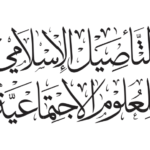 التأصيل الإسلامي
للعلوم الاجتماعية